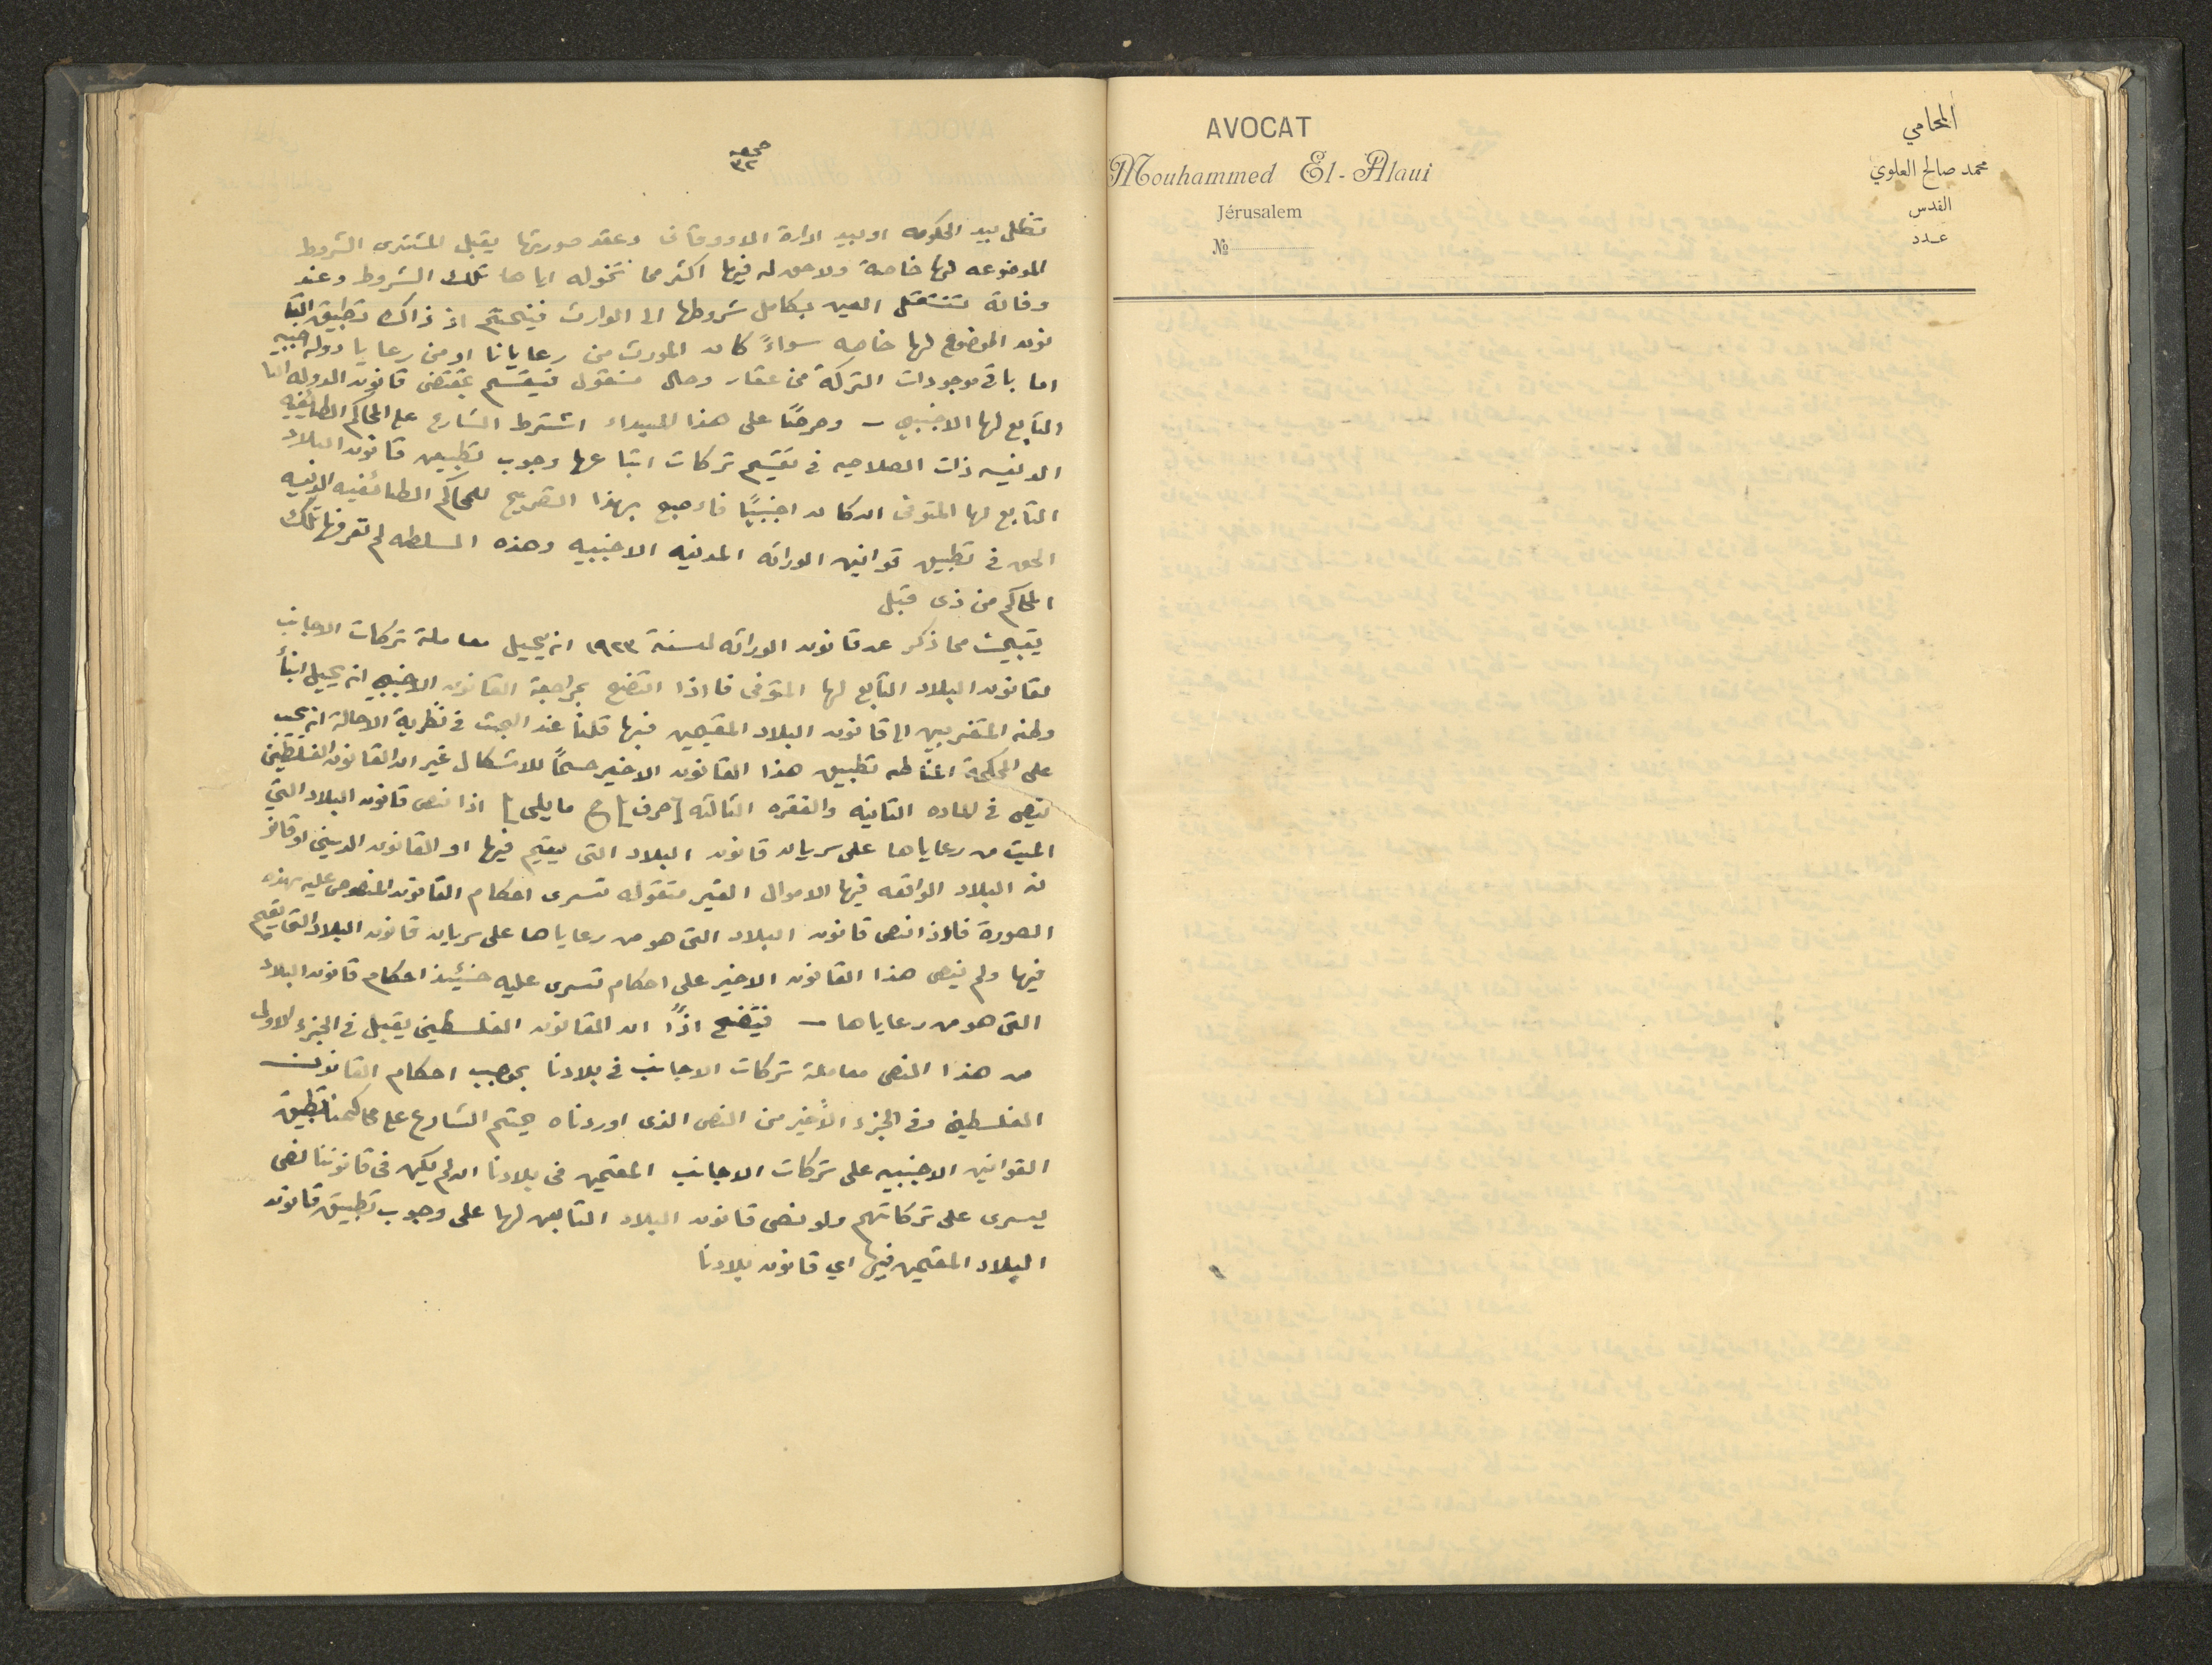 AVOCAT
Mouhammed El-Alaui
Jérusalem
№
المحامي
محمد صالح العلوي
القدس
عدد
صحيفة
٣٢
تظل بيد الحكومه او بيد ادارة الاوقاف وعند صورتها يقبل المشترى الشروط
الموضوعه لها خاصة ولا حق له فيها اكثر مما تخوله اياها تلك الشروط وعند
وفاته تنتقل العين بكامل شروطها الى الوارث فيتحتم اذ ذاك تطبيق القا
نون الموضوع لها خاصه سواءً كان المورث من رعايانا او من رعايا دوله اجنبيه
اما باقى موجودات التركة من عقار ومال منقول فيقسم بمقتضى قانون الدوله التا
التابع لها الاجنبي - وحرصًا على هذا المبداء اشترط الشارع على المحاكم الطائفيه
الدينيه ذات الصلاحيه فى تقسيم تركات اتباعها وجوب تطبيق قانون البلاد
التابع لها المتوفى ان كان اجنبيًا فاصبح بهذا التصريح للمحاكم الطائفيه الدينيه
الحق فى تطبيق قوانين الوراثه المدنيه الاجنبيه وهذه السلطه لم تعرفها تلك
المحاكم من ذى قبل
مما ذكر عن قانون الوراثه لسنة ١٩٢٣ انه يحيل معاملة تركات الاجانب
لقانون البلاد التابع لها المتوفى فاذا اتضح بمراجعة القانون الاجنبي انه يحيل ابناء
وطنه المتغربين الى قانون البلاد المقيمين فيها قلنا عند البحث فى نظرية الاحالة انه يجب
على المحكمة تطبيق هذا القانون الاخير حسمًا للاشكال غير ان القانون الفلسطينى
ينص فى الماده الثانيه والفقره الثالثه [حرف] ج ما يلى] اذا نص قانون البلاد التي
الميت من رعاياها على سريان قانون البلاد التى يقيم فيها او القانون الدينى او قانو
ن البلاد الواقعه فيها الاموال الغير منقوله تسرى احكام القانون المنصوص عليه بهذه
الصورة فاذا نص قانون البلاد التى هو من رعاياها على سريان قانون البلاد التى يقيم
فيها ولم ينص هذا القانون الاخير على احكام تسرى عليه حينئذ احكام قانون البلاد
التى هو من رعاياها - فيتضح اذًا ان القانون الفلسطينى يقبل فى الجزء الاول
من هذا النص معاملة تركات الاجانب فى بلادنا بموجب احكام القانون
الفلسطينى وفى الجزء الأخير من النص الذى اوردناه حتم الشارع على محاكمنا تطبيق
القوانين الاجنبيه على تركات الاجانب المقيمين فى بلادنا ان لم يكن فى قانوننا نص
يسرى على تركاتهم ولو نص قانون البلاد التابعين لها على وجوب تطبيق قانون
البلاد المقيمين فيها اي قانون بلادنا